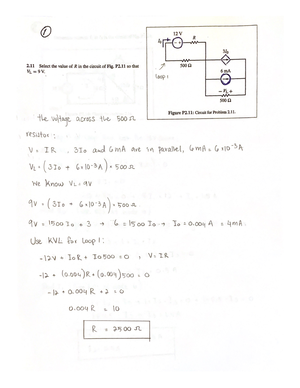 ①
2.11 Select the value of R in the circuit of Fig. P2.11 so that
V_L = 9 V.
12 V
I₀
R
500 Ω
3I₀
6 mA
- V_L +
500 Ω
loop 1
Figure P2.11: Circuit for Problem 2.11.
the voltage across the 500 Ω
resistor:
V = IR . 3I₀ and 6mA are in parallel, 6mA = 6×10⁻³A
V_L = (3I₀ + 6×10⁻³A) × 500 Ω
We know V_L = 9V
9V = (3I₀ + 6×10⁻³A) × 500 Ω
9V = 1500 I₀ + 3 → 6 = 1500 I₀ → I₀ = 0.004 A = 4mA.
Use KVL for loop 1:
-12V + I₀R + I₀500 = 0 , V = IR
-12 + (0.004)R + (0.004)500 = 0
-12 + 0.004R + 2 = 0
0.004R = 10
R = 2500 Ω